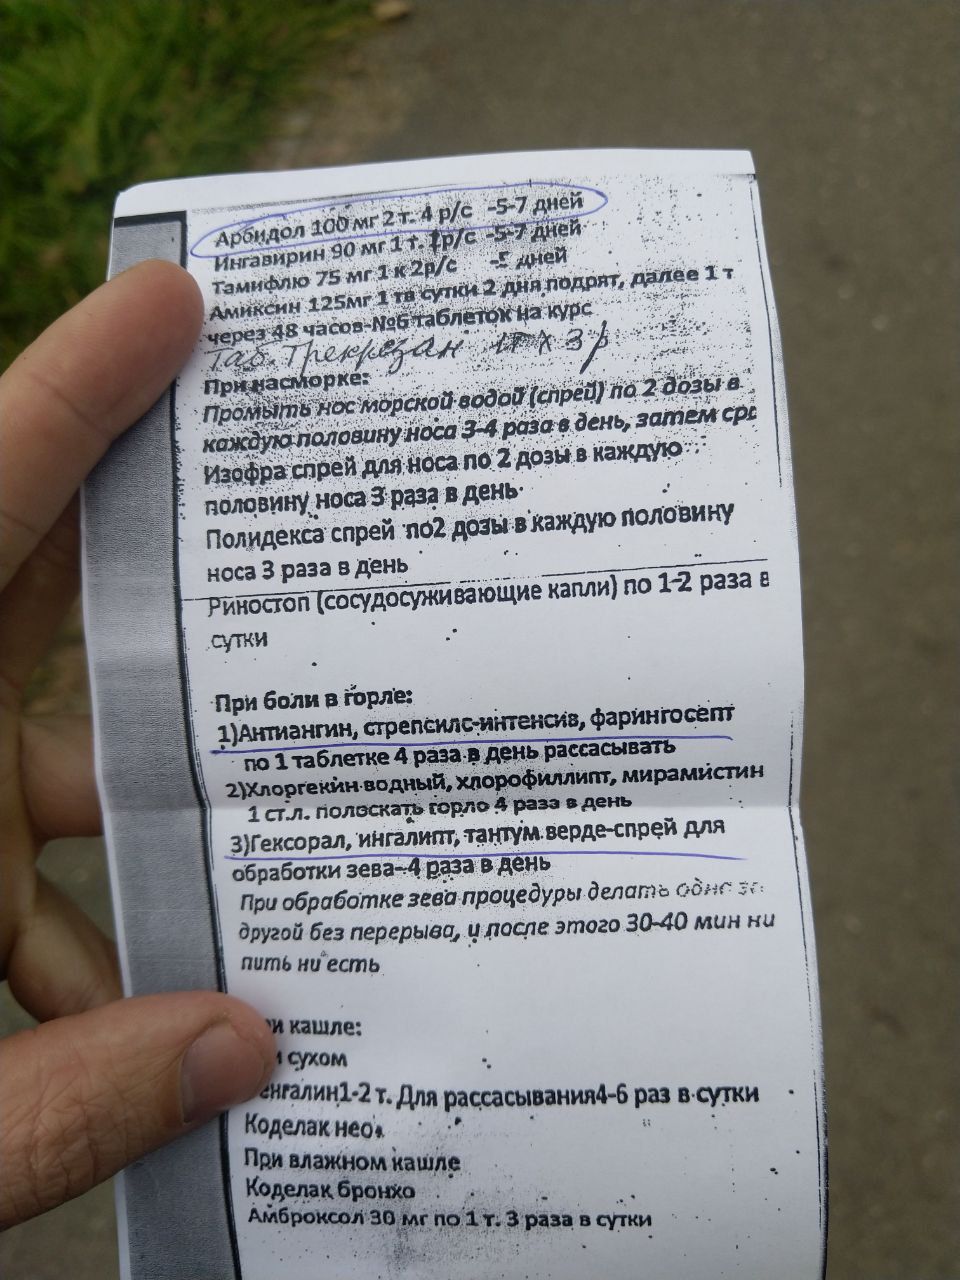 Арбидол 100 мг 2 т. 4 р/с -5-7 дней
Ингавирин 90 мг 1 т. 1р/с -5-7 дней
Тамифлю 75 мг 1 к 2р/с -5 дней
Амиксин 125мг 1 тв сутки 2 дня подрят, далее 1 т
через 48 часов-№6 таблеток на курс
Таб. Трекрезан 1т х 3 р
При насморке:
Промыть нос морской водой (спрей) по 2 дозы в
каждую половину носа 3-4 раза в день, затем
Изофра спрей для носа по 2 дозы в каждую
половину носа 3 раза в день
Полидекса спрей по2 дозы в каждую половину
носа 3 раза в день
Риностоп (сосудосуживающие капли) по 1-2 раза в
сутки
При боли в горле:
1)Антиангин, стрепсилс-интенсив, фарингосепт
по 1 таблетке 4 раза в день рассасывать
2)Хлоргекин водный, хлорофиллипт, мирамистин
1 ст.л. полоскать горло 4 раза в день
3)Гексорал, ингалипт, тантум верде-спрей для
обработки зева-4 раза в день
При обработке зева процедуры делать одно за
другой без перерыва, и после этого 30-40 мин ни
пить ни есть
кашле:
сухом
1-2 т. Для рассасывания4-6 раз в сутки
Коделак нео
При влажном кашле
Коделак бронхо
Амброксол 30 мг по 1 т. 3 раза в сутки